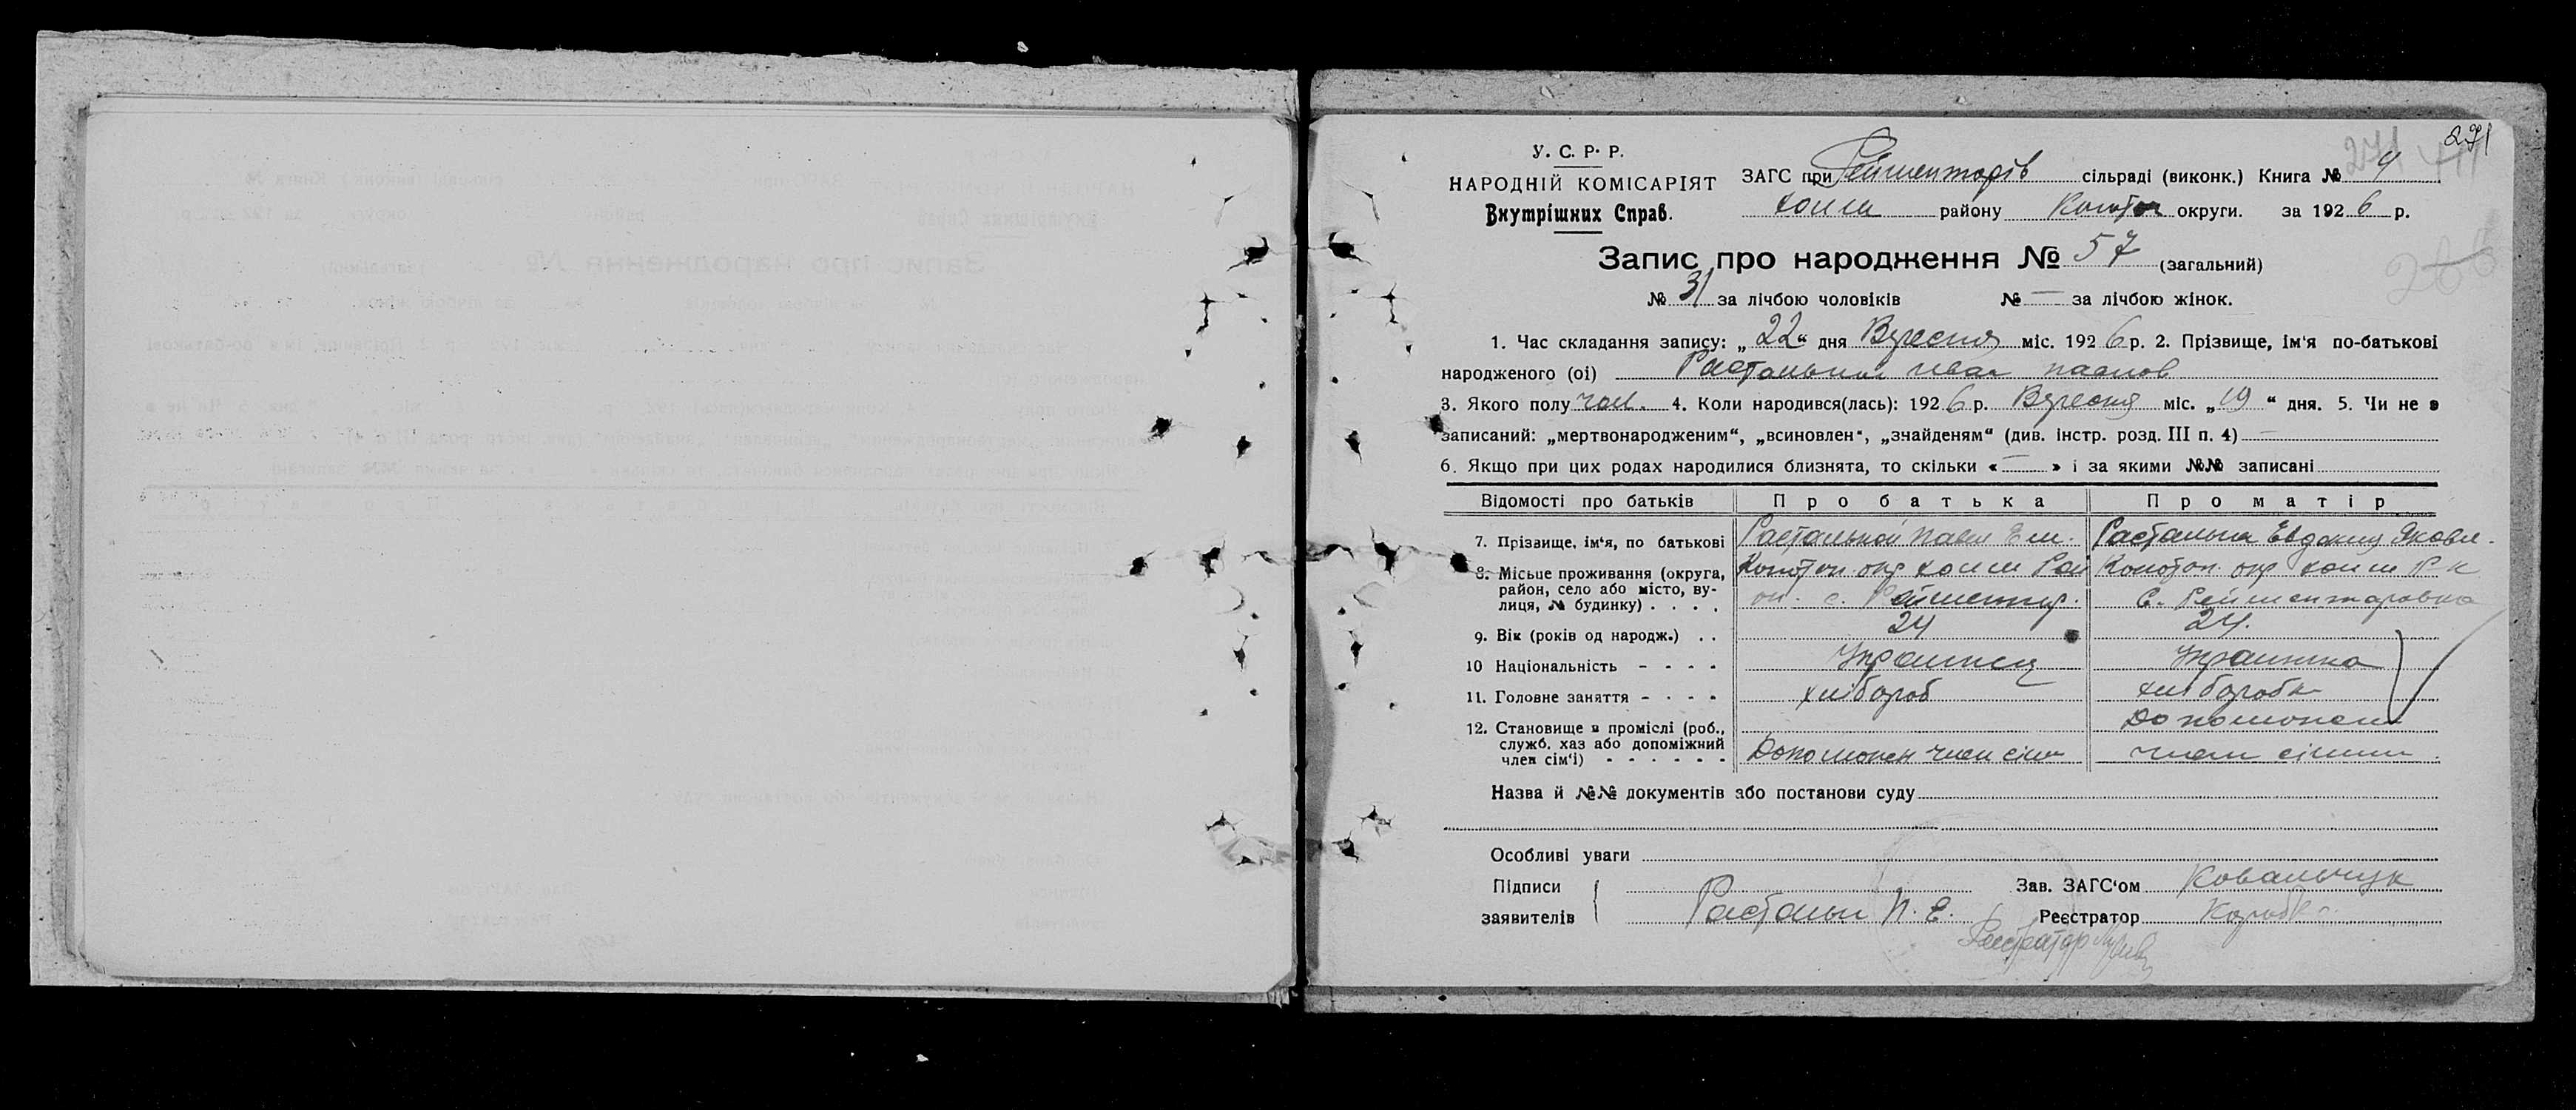 271 271
У. С. Р. Р.
НАРОДНІЙ КОМІСАРІЯТ
Внутрішних Справ.
ЗАГС при Рейментарів сільраді (виконк.) Книга № 4
Холм району Конотоп округи. за 1926 р.
Запис про народження № 57 (загальний)
№ 31 за лічбою чоловіків № — за лічбою жінок.
1. Час складання запису: „22“ дня Вересня міс. 1926 р. 2. Прізвище, ім'я по-батькові
народженого (ої) Растальной Иван Павлов
3. Якого полу чол. 4. Коли народився(лась): 1926 р. Вересня міс. „19“ дня. 5. Чи не є
записаний: „мертвонародженим“, „всиновлен“, „знайденям“ (див. інстр. розд. III п. 4) —
6. Якщо при цих родах народилися близнята, то скільки «—» і за якими №№ записані
Відомості про батьків Про батька Про матір
7. Прізвище, ім'я, по батькові Растальной Павел Ем. Растальна Евдокия Яковл.
8. Місьце проживання (округа, район, село або місто, вулиця, № будинку) . . . .
Конотоп. окр Холм Рай
с. Рейментар.
Конотоп. окр Холм Р-н
С. Рейментаровка
9. Вік (років од народж.) . . 24 24.
10 Національність - - - - Українец Українка
11. Головне заняття - - - - хлібороб хліборобк
12. Становище в проміслі (роб., служб. хаз або допоміжний член сім'ї) - - - - - -
Допоможн член сім
Допоможн
член сімии
Назва й №№ документів або постанови суду
Особливі уваги
Підписи
заявителів
Растальн П. Е.
Зав. ЗАГС'ом Ковальчук
Реєстратор